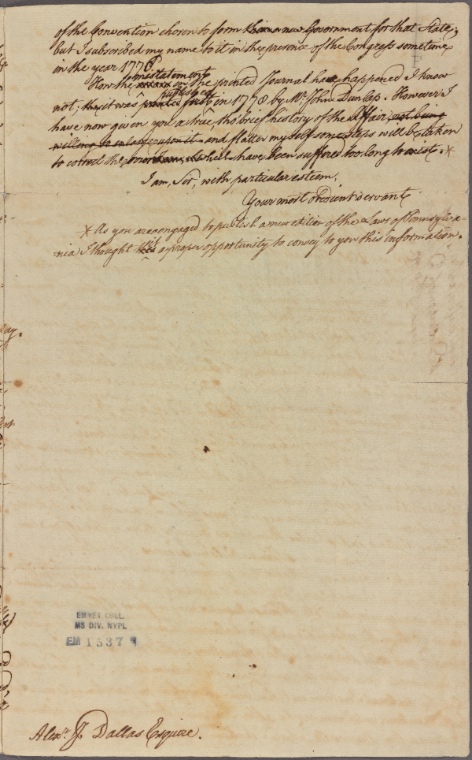 of the Convention chosen to form a new Government for that State;
but I subscribed my name to it in the presence of the Congress sometime
in the year 1776.
misstatement
How the error in the printed Journal has happened I know
published
not; that it was printed first in 1778 by Mr. John Dunlap. However I
have now given you a true, tho brief history of the Affair, not being
willing to enlarge upon it and flatter myself some steps will be taken
to correct the which have been suffered too long to exist. x
I am, Sir, with particular esteem,
Your most Obedient Servant
x As you are engaged to publish a new edition of the Laws of Pennsylva-
nia I thought this a proper opportunity to convey to you this information.
EMMET COLL.
MS DIV. NYPL
EM 1537
Alexr. J. Dallas Esquire.